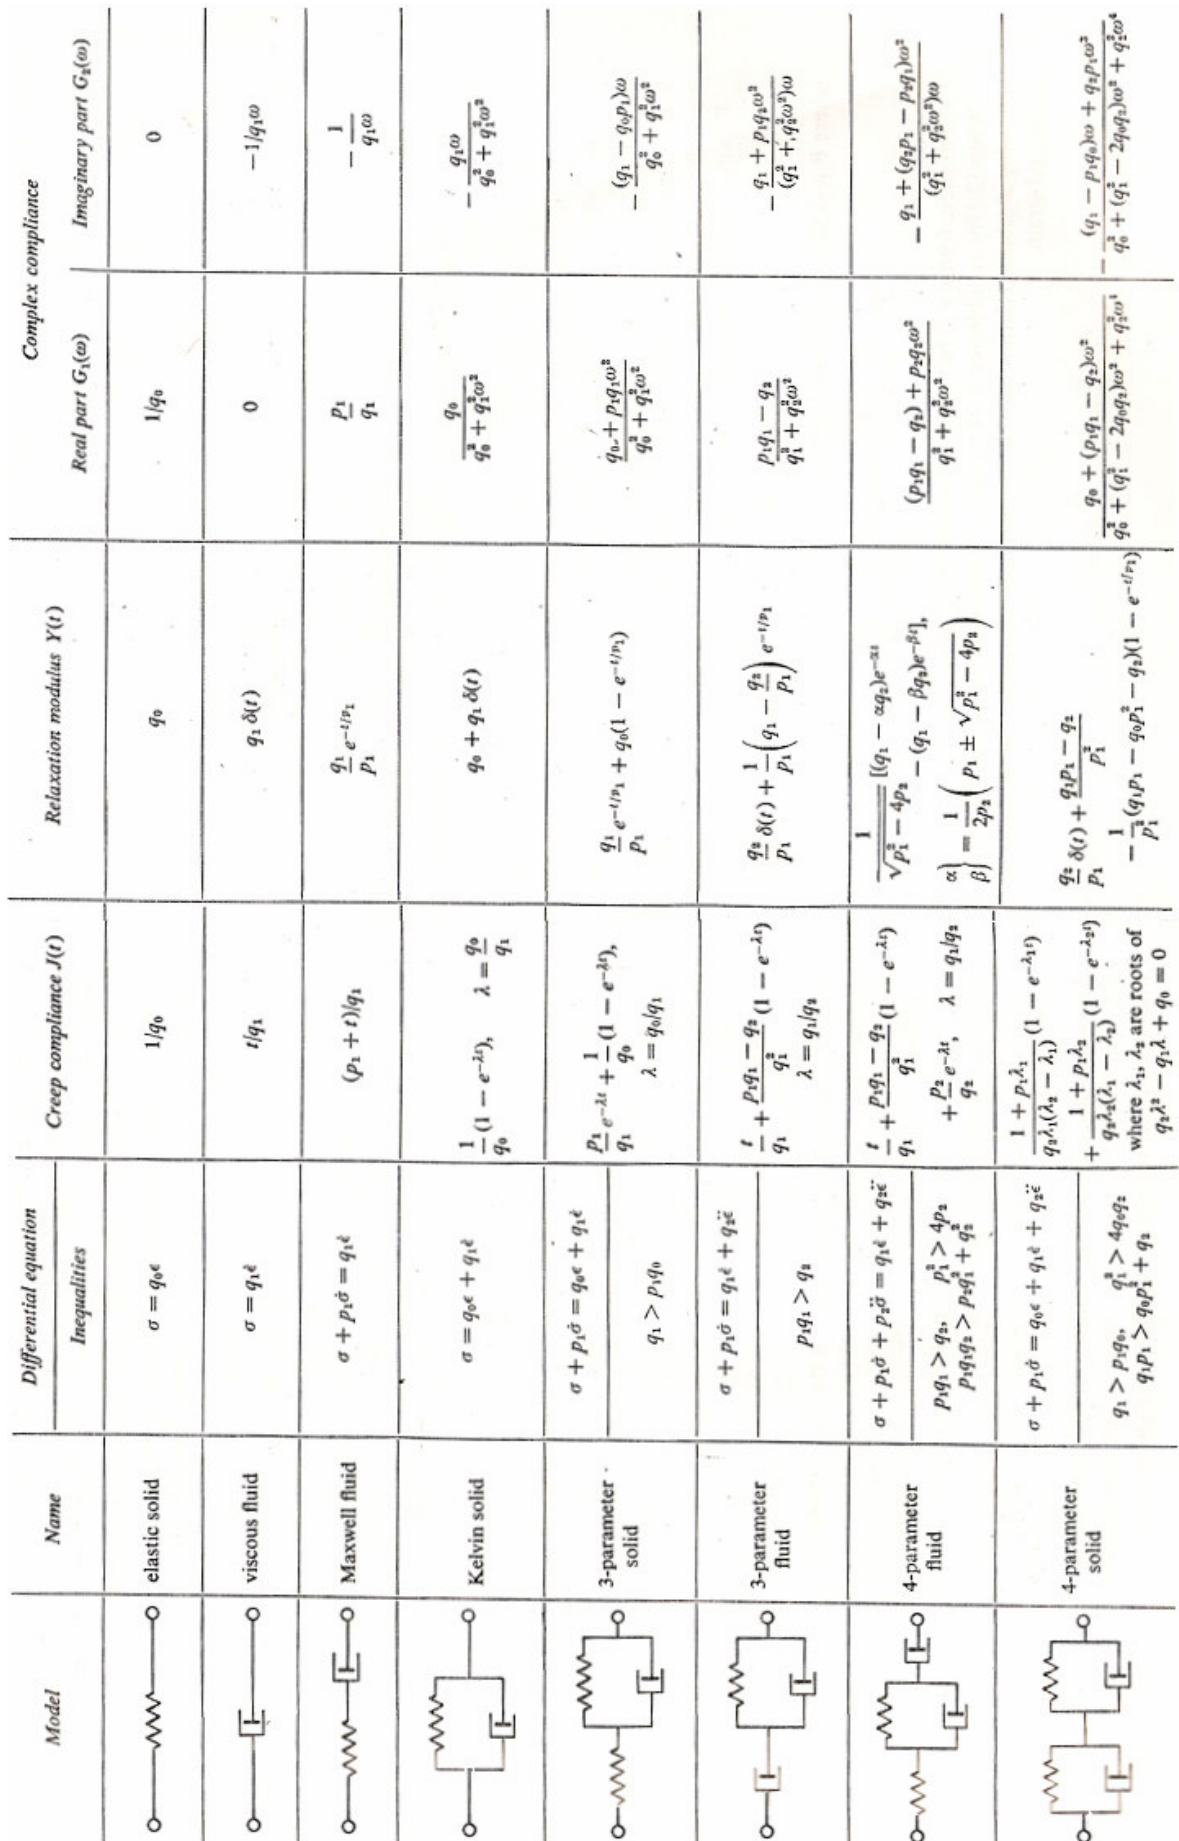 Model
Name
Differential equation
Inequalities
Creep compliance J(t)
Relaxation modulus Y(t)
Complex compliance
Real part G₁(ω)
Imaginary part G₂(ω)
elastic solid
σ = q₀ϵ
1/q₀
q₀
1/q₀
0
viscous fluid
σ = q₁ϵ̇
t/q₁
q₁ δ(t)
0
−1/q₁ω
Maxwell fluid
σ + p₁σ̇ = q₁ϵ̇
(p₁ + t)/q₁
q₁/p₁ e^(−t/p₁)
p₁/q₁
− 1/(q₁ω)
Kelvin solid
σ = q₀ϵ + q₁ϵ̇
1/q₀ (1 − e^(−λt)), λ = q₀/q₁
q₀ + q₁ δ(t)
q₀/(q₀² + q₁²ω²)
− q₁ω/(q₀² + q₁²ω²)
3-parameter
solid
σ + p₁σ̇ = q₀ϵ + q₁ϵ̇
q₁ > p₁q₀
p₁/q₁ e^(−λt) + 1/q₀ (1 − e^(−λt)),
λ = q₀/q₁
q₁/p₁ e^(−t/p₁) + q₀(1 − e^(−t/p₁))
(q₀ + p₁q₁ω²)/(q₀² + q₁²ω²)
− (q₁ − q₀p₁)ω/(q₀² + q₁²ω²)
3-parameter
fluid
σ + p₁σ̇ = q₁ϵ̇ + q₂ϵ̈
p₁q₁ > q₂
t/q₁ + (p₁q₁ − q₂)/q₁² (1 − e^(−λt))
λ = q₁/q₂
q₂/p₁ δ(t) + 1/p₁ (q₁ − q₂/p₁) e^(−t/p₁)
(p₁q₁ − q₂)/(q₁² + q₂²ω²)
− (q₁ + p₁q₂ω²)/((q₁² + q₂²ω²)ω)
4-parameter
fluid
σ + p₁σ̇ + p₂σ̈ = q₁ϵ̇ + q₂ϵ̈
p₁q₁ > q₂, p₁² > 4p₂
p₁q₁q₂ > p₂q₁² + q₂²
t/q₁ + (p₁q₁ − q₂)/q₁² (1 − e^(−λt))
+ p₂/q₂ e^(−λt), λ = q₁/q₂
1/√(p₁² − 4p₂) [(q₁ − αq₂)e^(−αt)
− (q₁ − βq₂)e^(−βt)],
α β} = 1/(2p₂) (p₁ ± √(p₁² − 4p₂))
((p₁q₁ − q₂) + p₂q₂ω²)/(q₁² + q₂²ω²)
− (q₁ + (q₂p₁ − p₂q₁)ω²)/((q₁² + q₂²ω²)ω)
4-parameter
solid
σ + p₁σ̇ = q₀ϵ + q₁ϵ̇ + q₂ϵ̈
q₁ > p₁q₀, q₁² > 4q₀q₂
q₁p₁ > q₀p₁² + q₂
(1 + p₁λ₁)/(q₂λ₁(λ₂ − λ₁)) (1 − e^(−λ₁t))
+ (1 + p₁λ₂)/(q₂λ₂(λ₁ − λ₂)) (1 − e^(−λ₂t))
where λ₁, λ₂ are roots of
q₂λ² − q₁λ + q₀ = 0
q₂/p₁ δ(t) + (q₁p₁ − q₂)/p₁²
− 1/p₁² (q₁p₁ − q₀p₁² − q₂)(1 − e^(−t/p₁))
(q₀ + (p₁q₁ − q₂)ω²)/(q₀² + (q₁² − 2q₀q₂)ω² + q₂²ω⁴)
− ((q₁ − p₁q₀)ω + q₂p₁ω³)/(q₀² + (q₁² − 2q₀q₂)ω² + q₂²ω⁴)